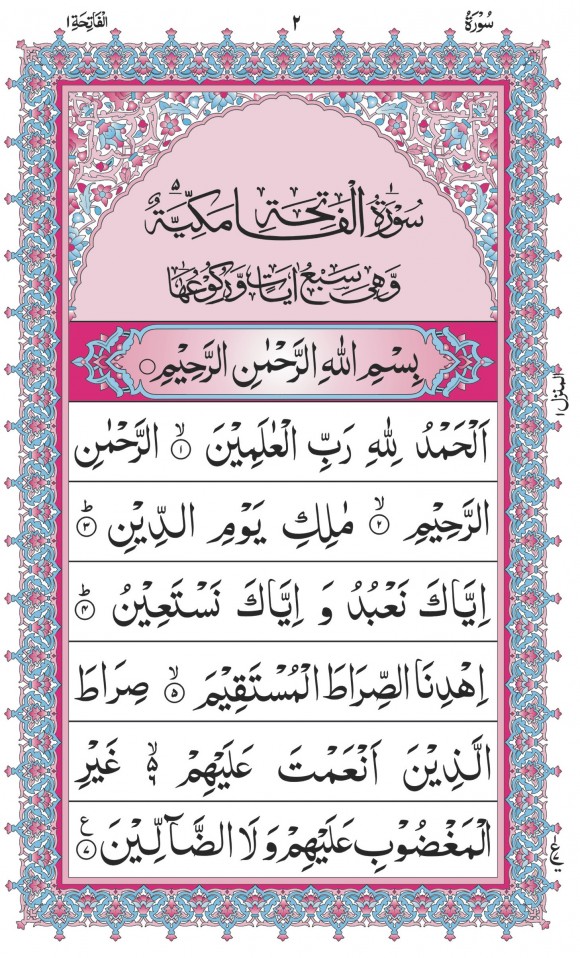 سُوْرَةُ ٢ الْفَاتِحَة ١
سُوْرَةُ الْفَاتِحَةِ مَكِّيَّةٌ
وَّهِیَ سَبْعُ اٰیَاتٍ وَّرُكُوْعُهَا ١
بِسْمِ اللّٰهِ الرَّحْمٰنِ الرَّحِیْمِ
اَلْحَمْدُ لِلّٰهِ رَبِّ الْعٰلَمِیْنَ ۙ﴿١﴾ الرَّحْمٰنِ
الرَّحِیْمِ ۙ﴿٢﴾ مٰلِكِ یَوْمِ الدِّیْنِ ؕ﴿٣﴾
اِیَّاكَ نَعْبُدُ وَ اِیَّاكَ نَسْتَعِیْنُ ؕ﴿۴﴾
اِهْدِنَا الصِّرَاطَ الْمُسْتَقِیْمَ ۙ﴿۵﴾ صِرَاطَ
الَّذِیْنَ اَنْعَمْتَ عَلَیْهِمْ ۙ۬۶ غَیْرِ
الْمَغْضُوْبِ عَلَیْهِمْ وَ لَا الضَّآلِّیْنَ ﴿٧﴾ ع
المنزل ١